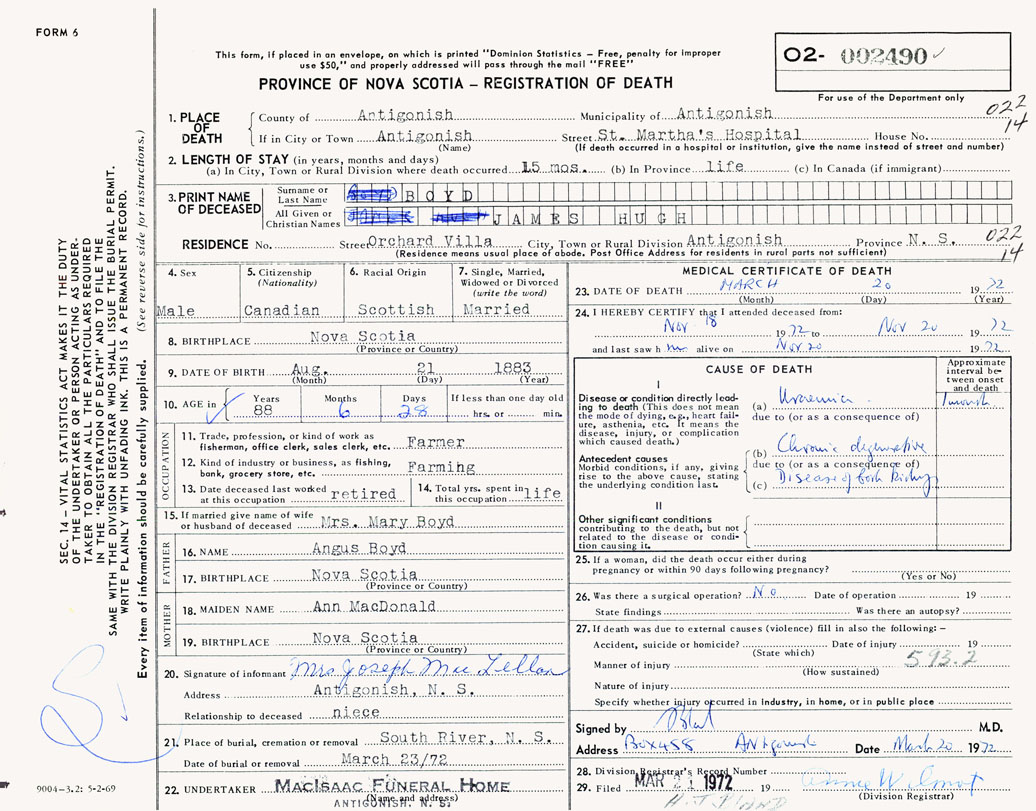 FORM 6
This form, if placed in an envelope, on which is printed "Dominion Statistics – Free, penalty for improper
use $50," and properly addressed will pass through the mail "FREE"
PROVINCE OF NOVA SCOTIA – REGISTRATION OF DEATH
O2- 002490
For use of the Department only
022
14
1. PLACE OF DEATH
County of Antigonish Municipality of Antigonish
If in City or Town Antigonish Street St. Martha's Hospital House No.
(Name) (If death occurred in a hospital or institution, give the name instead of street and number)
2. LENGTH OF STAY (in years, months and days)
(a) In City, Town or Rural Division where death occurred 15 mos. (b) In Province life (c) In Canada (if immigrant)
3. PRINT NAME OF DECEASED
Surname or Last Name BOYD
All Given or Christian Names JAMES HUGH
RESIDENCE No. Street Orchard Villa City, Town or Rural Division Antigonish Province N. S.
022
14
(Residence means usual place of abode. Post Office Address for residents in rural parts not sufficient)
4. Sex
Male
5. Citizenship
(Nationality)
Canadian
6. Racial Origin
Scottish
7. Single, Married,
Widowed or Divorced
(write the word)
Married
8. BIRTHPLACE Nova Scotia
(Province or Country)
9. DATE OF BIRTH Aug. 21 1883
(Month) (Day) (Year)
10. AGE in
Years Months Days If less than one day old
88 6 28 hrs. or min.
OCCUPATION
11. Trade, profession, or kind of work as
fisherman, office clerk, sales clerk, etc. Farmer
12. Kind of industry or business, as fishing,
bank, grocery store, etc. Farmihg
13. Date deceased last worked
at this occupation retired
14. Total yrs. spent in
this occupation life
15. If married give name of wife
or husband of deceased Mrs. Mary Boyd
FATHER
16. NAME Angus Boyd
17. BIRTHPLACE Nova Scotia
(Province or Country)
MOTHER
18. MAIDEN NAME Ann MacDonald
19. BIRTHPLACE Nova Scotia
(Province or Country)
20. Signature of informant Mrs Joseph MacLellan
Address Antigonish, N. S.
Relationship to deceased niece
21. Place of burial, cremation or removal South River, N. S.
Date of burial or removal March 23/72
22. UNDERTAKER MacIsaac Funeral Home
(Name and address)
ANTIGONISH, N. S.
MEDICAL CERTIFICATE OF DEATH
23. DATE OF DEATH MARCH 20 1972
(Month) (Day) (Year)
24. I HEREBY CERTIFY that I attended deceased from:
Nov 18 1972 to Nov 20 1972
and last saw h im alive on Nov 20 1972
CAUSE OF DEATH
Approximate
interval be-
tween onset
and death
I
Disease or condition directly lead-
ing to death (This does not mean
the mode of dying, e.g., heart fail-
ure, asthenia, etc. It means the
disease, injury, or complication
which caused death.)
(a) Uraemia 1 month
due to (or as a consequence of)
Antecedent causes
Morbid conditions, if any, giving
rise to the above cause, stating
the underlying condition last.
(b) Chronic degenerative
due to (or as a consequence of)
(c) Disease of both Kidneys
II
Other significant conditions
contributing to the death, but not
related to the disease or condi-
tion causing it.
25. If a woman, did the death occur either during
pregnancy or within 90 days following pregnancy?
(Yes or No)
26. Was there a surgical operation? No Date of operation 19
State findings Was there an autopsy?
27. If death was due to external causes (violence) fill in also the following: –
Accident, suicide or homicide? Date of injury 19
(State which)
593.2
Manner of injury
(How sustained)
Nature of injury
Specify whether injury occurred in industry, in home, or in public place
Signed by M.D.
Address Box 458 Antigonish Date March 20 1972
28. Division Registrar's Record Number
29. Filed MAR 21 1972 19
(Division Registrar)
SEC. 14 – VITAL STATISTICS ACT MAKES IT THE DUTY
OF THE UNDERTAKER OR PERSON ACTING AS UNDER-
TAKER TO OBTAIN ALL THE PARTICULARS REQUIRED
IN THE "REGISTRATION OF DEATH" AND TO FILE THE
SAME WITH THE DIVISION REGISTRAR WHO SHALL ISSUE THE BURIAL PERMIT.
WRITE PLAINLY WITH UNFADING INK. THIS IS A PERMANENT RECORD.
Every item of information should be carefully supplied. (See reverse side for instructions.)
9004-3.2: 5-2-69